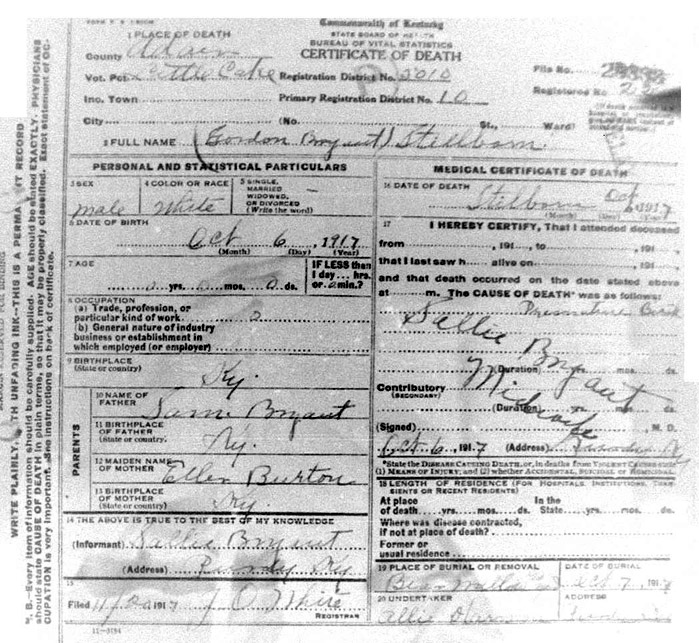 Commonwealth of Kentucky
STATE BOARD OF HEALTH
BUREAU OF VITAL STATISTICS
CERTIFICATE OF DEATH
1 PLACE OF DEATH
County Adair
Vot. Pct. Little Cake Registration District No. 5010
File No.
Inc. Town Primary Registration District No. 10
Registered No.
City (No. St., Ward)
2 FULL NAME (Gordon Bryant) Stillborn
PERSONAL AND STATISTICAL PARTICULARS
3 SEX
male
4 COLOR OR RACE
White
5 SINGLE,
MARRIED
WIDOWED,
OR DIVORCED
(Write the word)
6 DATE OF BIRTH
Oct 6, 1917
(Month) (Day) (Year)
7 AGE
0 yrs. 0 mos. 0 ds.
IF LESS than
1 day... hrs.
or 0 min.?
8 OCCUPATION
(a) Trade, profession, or
particular kind of work 0
(b) General nature of industry
business or establishment in
which employed (or employer)
9 BIRTHPLACE
(State or country)
Ky.
PARENTS
10 NAME OF
FATHER
Sam Bryant
11 BIRTHPLACE
OF FATHER
(State or country.
Ky.
12 MAIDEN NAME
OF MOTHER
Ellen Burton
13 BIRTHPLACE
OF MOTHER
(State or country)
Ky
14 THE ABOVE IS TRUE TO THE BEST OF MY KNOWLEDGE
(Informant) Sallie Bryant
(Address) Ky
15
Filed 1917
REGISTRAR
MEDICAL CERTIFICATE OF DEATH
16 DATE OF DEATH
Stillborn Oct 6, 1917
(Month) (Day) (Year)
17 I HEREBY CERTIFY, That I attended deceased
from , 191 , to , 191
that I last saw h alive on , 191
and that death occurred on the date stated above
at m. The CAUSE OF DEATH* was as follows:
Premature Birth
Sallie Bryant
(Duration) yrs. mos. ds.
Midwife
Contributory
(SECONDARY)
(Duration) yrs. mos. ds.
(Signed) M. D.
Oct 6, 1917 (Address)
*State the DISEASE CAUSING DEATH, or, in deaths from VIOLENT CAUSES state
(1) MEANS OF INJURY; and (2) whether ACCIDENTAL, SUICIDAL or HOMICIDAL.
18 LENGTH OF RESIDENCE (FOR HOSPITALS, INSTITUTIONS, TRANSIENTS OR RECENT RESIDENTS)
At place
of death yrs. mos. ds.
In the
State yrs. mos. ds.
Where was disease contracted,
if not at place of death?
Former or
usual residence
19 PLACE OF BURIAL OR REMOVAL
DATE OF BURIAL
Oct 7, 191
20 UNDERTAKER
Allie
ADDRESS
11-3184
WRITE PLAINLY, WITH UNFADING INK—THIS IS A PERMANENT RECORD
N. B.—Every item of information should be carefully supplied. AGE should be stated EXACTLY. PHYSICIANS
should state CAUSE OF DEATH in plain terms, so that it may be properly classified. Exact statement of OC-
CUPATION is very important. See instructions on back of certificate.